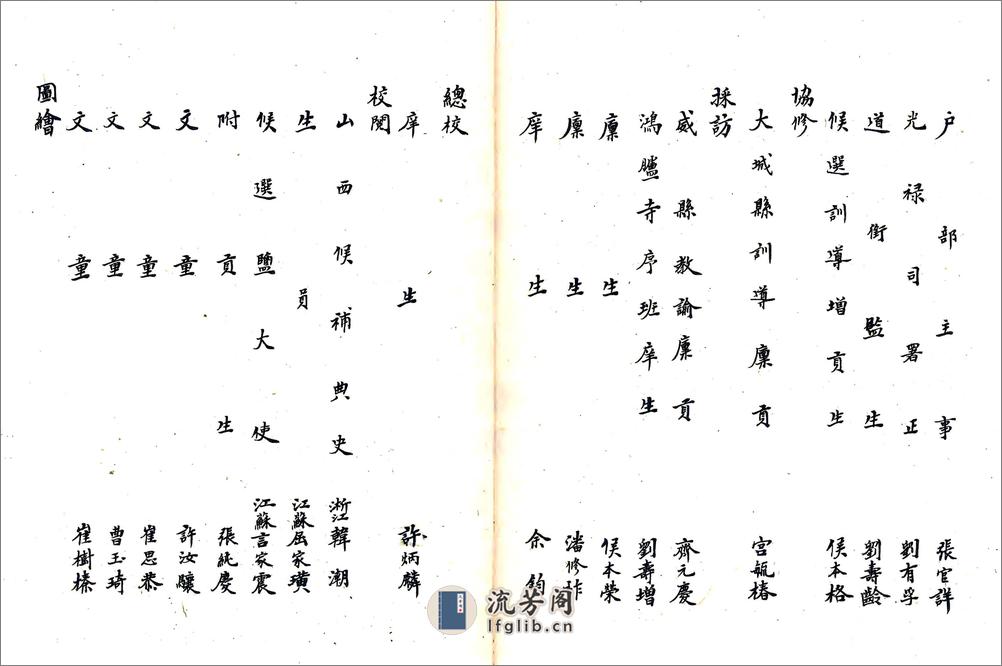 戶部主事 張官詳
光祿司署正 劉有孚
道銜監生 劉壽齡
候選訓導增貢生 侯本格
協修
大城縣訓導廩貢 宮毓椿
採訪
威縣教諭廩貢 齊元慶
鴻臚寺序班庠生 劉壽增
廩生 侯本榮
廩生 潘修
庠生 余鈞
總校
庠生 許炳麟
校閱
山西候補典史 浙江韓潮
生員 江蘇屈家璜
候選鹽大使 江蘇言家震
附貢生 張純慶
文童 許汝驤
文童 崔思恭
文童 曹玉琦
文童 崔樹榛
圖繪
流芳阁
lfglib.cn